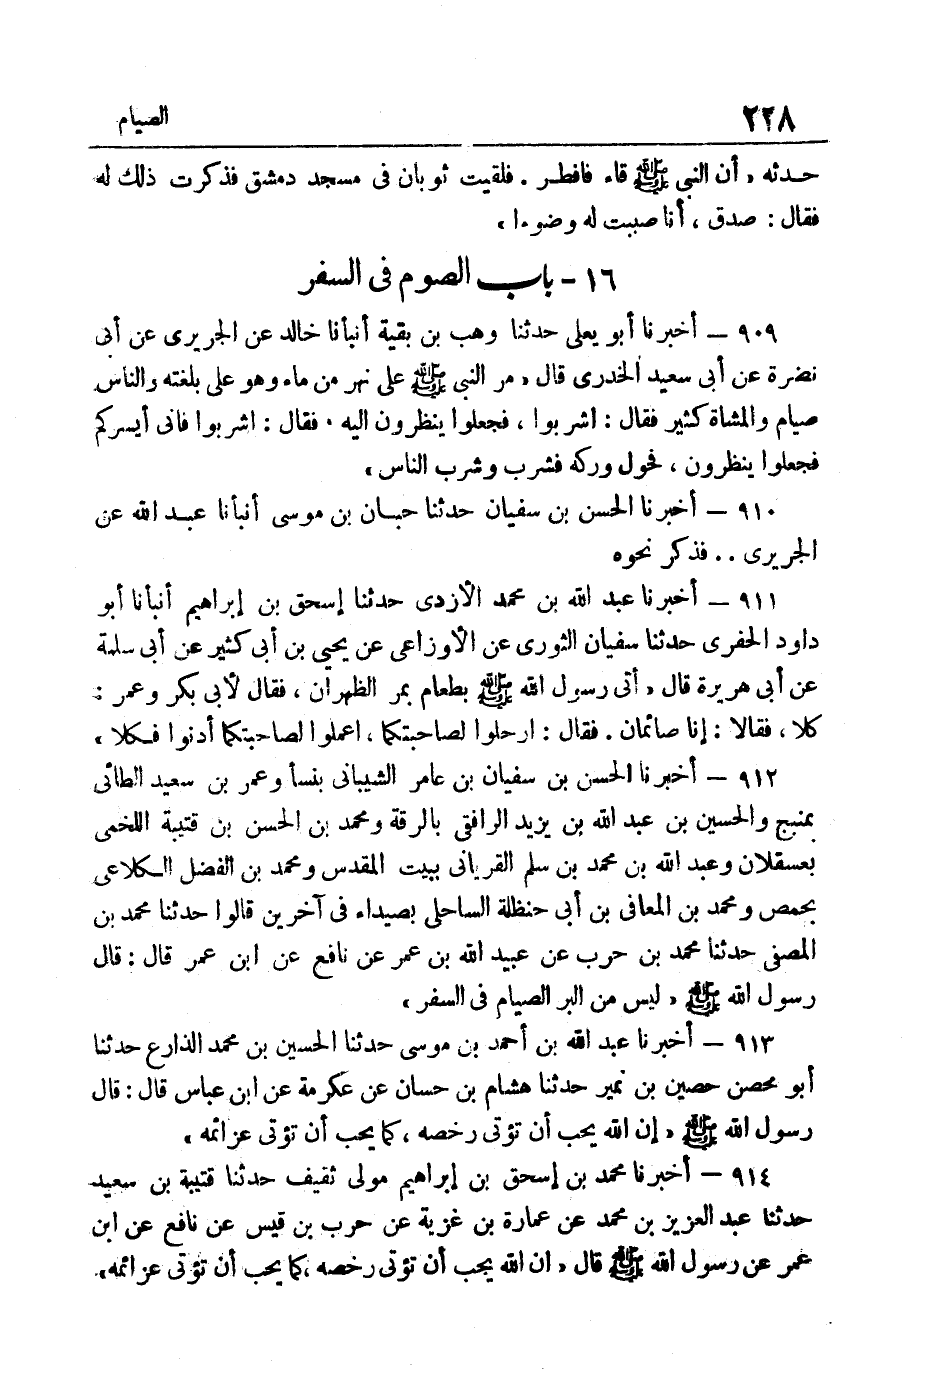 ٢٢٨
الصيام
حـدثه « أن النبي ﷺ قاء فافطـر . فلقيت ثوبان فى مسجد دمشق فذكرت ذلك له
فقال : صدق ، أنا صببت له وضوءا »
١٦ - باب الصوم فى السفر
٩٠٩ — أخبرنا أبو يعلى حدثنا وهب بن بقية أنبأنا خالد عن الجريرى عن أبى
نضرة عن أبى سعيد الخدرى قال « مر النبي ﷺ على نهر من ماء وهو على بلغته والناس
صيام والمشاة كثير فقال : اشربوا ، فجعلوا ينظرون اليه . فقال : اشربوا فانى أيسركم
فجعلوا ينظرون ، فحول وركه فشرب وشرب الناس »
٩١٠ — أخبرنا الحسن بن سفيان حدثنا حبـان بن موسى أنبأنا عبـد الله عن
الجريرى . . فذكر نحوه
٩١١ — أخبرنا عبد الله بن محمد الأزدى حدثنا إسحق بن إبراهيم أنبأنا أبو
داود الحفرى حدثنا سفيان الثورى عن الأوزاعى عن يحيى بن أبى كثير عن أبى سلمة
عن أبى هريرة قال « أتى رسول الله ﷺ بطعام بمر الظهران ، فقال لأبى بكر وعمر :
كلا ، فقالا : إنا صائمان . فقال : ارحلوا لصاحبتكما ، اعملوا لصاحبتكما أدنوا فـكلا »
٩١٢ — أخبرنا الحسن بن سفيان بن عامر الشيبانى بنسأ وعمر بن سعيد الطائى
بمنبج والحسين بن عبد الله بن يزيد الرافقى بالرقة ومحمد بن الحسن بن قتيبة اللخمى
بعسقلان وعبد الله بن محمد بن سلم الفريانى ببيت المقدس ومحمد بن الفضل الـكلاعى
بحمص ومحمد بن المعافى بن أبى حنظلة الساحلى بصيداء فى آخرين قالوا حدثنا محمد بن
المصفى حدثنا محمد بن حرب عن عبيد الله بن عمر عن نافع عن ابن عمر قال : قال
رسول الله ﷺ « ليس من البر الصيام فى السفر »
٩١٣ — أخبرنا عبد الله بن أحمد بن موسى حدثنا الحسين بن محمد الذارع حدثنا
أبو محصن حصين بن نمير حدثنا هشام بن حسان عن عكرمة عن ابن عباس قال : قال
رسول الله ﷺ « إن الله يحب أن تؤتى رخصه ، كما يحب أن تؤتى عزائمه »
٩١٤ — أخبرنا محمد بن إسحق بن إبراهيم مولى ثقيف حدثنا قتيبة بن سعيد
حدثنا عبد العزيز بن محمد عن عمارة بن غزية عن حرب بن قيس عن نافع عن ابن
عمر عن رسول الله ﷺ قال « ان الله يحب أن تؤتى رخصه ،كما يحب أن تؤتى عزائمه»